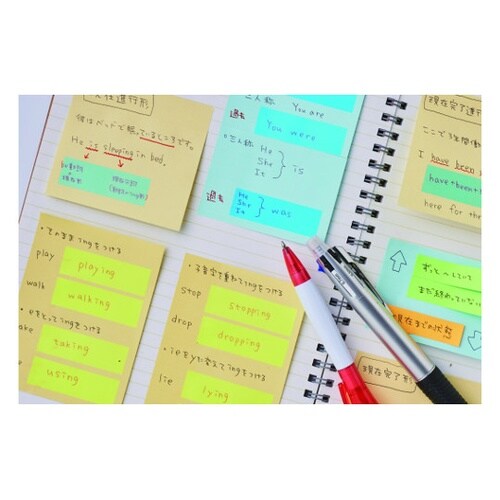 進行形
彼はベッドで眠っているところです。
He is sleeping in bed.
be動詞
現在形
現在分詞
You are
過去
You were
三人称
He
She
It
is
過去
He
She
It
was
現在完了進行形
ここで3年間働
I have been
have+been+
here for the
・そのままingをつける
play
playing
walk
walking
eをとってingをつける
taking
using
・子音字を重ねてingをつける
stop
stopping
drop
dropping
・ieをyに変えてingをつける
lie
lying
ずっと〜している
まだ終わっていない
現在までの状態
現在完了形